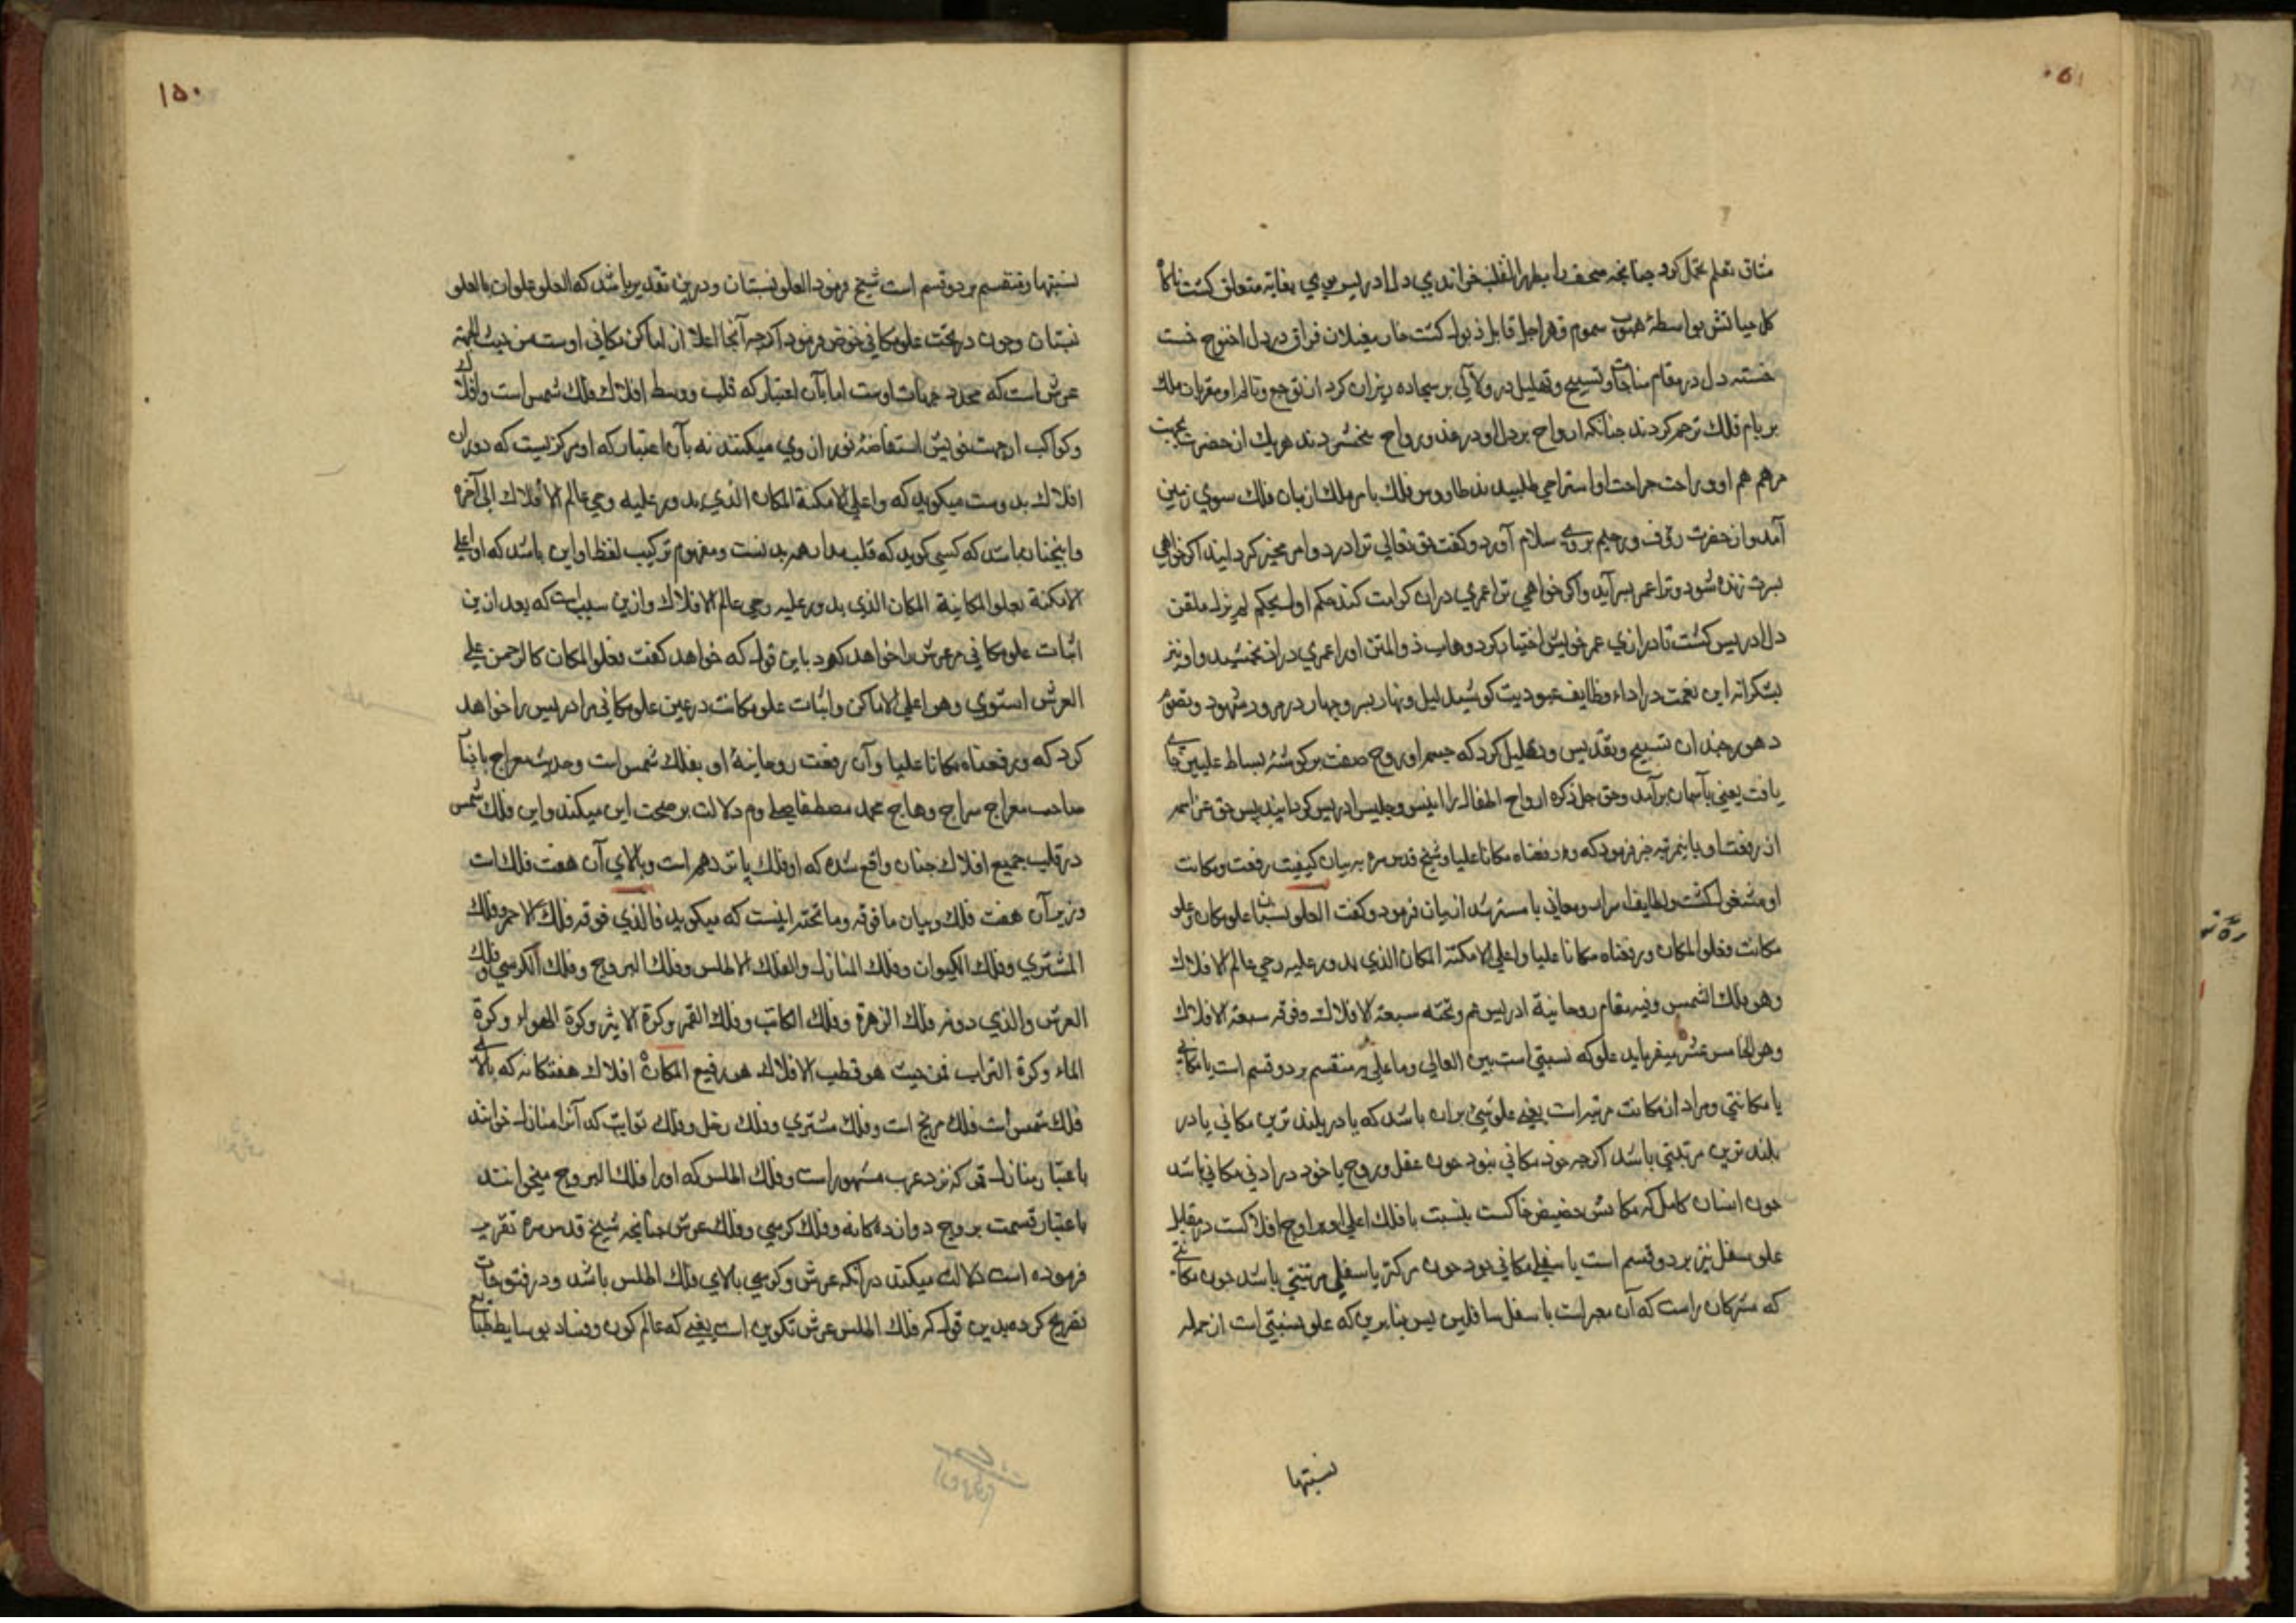 مشاق تعلم تحمل کرد چنانچه صحف را بظهر القلب خواندی دل ادریس بوی بغایة متعلق کشت ناکاه
کل حیاتش بواسطهٔ هبوب سموم قهر اجل قابل ذبول کشت خار مغیلان فراق در دل اخنوخ خست
خسته دل در مقام مناجات و تسبیح و تهلیل در ولآلی بر سجاده ریزان کرد از توجع و تالم او مقربان ملک
بر بام فلک ترحم کردند چنانکه ارواح بر دل او در غدو و رواح بخشودند هریک از حضرت بجهت
مرهم هم او و راحت جراحت او استراحی طلبیدند طاووس فلک با مر ملک از بان فلک سوی زمین
آمد و از حضرت رؤف و رحیم بروی سلام آورد و کفت حق تعالی ترا در دو امر مخیر کردانید اکر خواهی
پسرت زنده شود و ترا عمر بسر آید و اکر خواهی ترا عمری دراز کرامت کند حکم اولیحکم لم یزل ملقن
دل ادریس کشت تا درازی عمر خویش اختیار کرد وهاب ذو المنن او را عمری دراز بخشید و او نیز
بشکرانه این نعمت در اداء وظایف عبودیت کوشید لیل و نهار بسر و جهار در مرور شهور و تصور
دهور چندان تسبیح و تقدیس و تهلیل کرد که جسم او روح صفت بر کوشهٔ بساط علیین جای
یافت یعنی بآسمان برآمد و حق جل ذکره ارواح اطفال را انیس و جلیس ادریس کردانید پس حق عز اسمه
از رفعت او باینمرتبه خبر فرمود که ورفعناه مکانا علیا و شیخ قدس سره به بیان کیفیت رفعت و مکانت
او مشغول کشت و لطایف اسرار و معانی با مسترشدان بیان فرمود و کفت العلو نسبتان علو مکان وعلو
مکانت فعلو المکان ورفعناه مکانا علیا واعلی الامکنة المکان الذی یدور علیه رحی عالم الافلاک
وهو فلک الشمس وفیه مقام روحانیة ادریس عم وتحته سبعة الافلاک وفوقه سبعة الافلاک
وهو الخامس عشر میفرماید علو که نسبتی است بین العالی وما علی به منقسم بر دو قسم است یا مکانی
یا مکانتی و مراد از مکانت مرتبه است یعنی علو شیئ بران باشد که یا در بلند ترین مکانی یا در
بلند ترین مرتبتی باشد اکرچه خود مکانی نبود چون عقل و روح یا خود در ادنی مکانی باشد
چون انسان کامل که مکانش حضیض خاکست بنسبت با فلک اعلی و اوج افلاکست در مقابل
علو سفل نیز بر دو قسم است یا سفلی مکانی بود چون مرکز یا سفلی مرتبتی باشد چون مکانتی
که مشرکان راست که آن معبر است با سفل سافلین پس بنابرین که علو نسبتی است از جمله
نسبتها
١٥٠
نسبتها و منقسم بر دو قسم است شیخ فرمود العلو نسبتان و درین تقدیر باشد که العلو علوان بالعلو
نسبتان و چون در بحث علو مکانی خوض فرمود اکرچه آنجا اعلا از اماکن مکانی اوست من حیث الجهة
عرش است که محدد جهات اوست اما بآن اعتبار که قلب و وسط افلاک فلک شمس است وافلاک
و کواکب از جهت خویش استفاضهٔ نور از وی میکنند نه بآن اعتبار که او مرکزیست که دوران
افلاک بدوست میکوید که واعلی الامکنة المکان الذی یدور علیه رحی عالم الافلاک الی آخره
و اینچنان باشد که کسی کوید که قلب مدار همه بدنست ومفهوم ترکیب لفظ او این باشد که او اعلی
الامکنة بعلو المکانیة المکان الذی یدور علیه رحی عالم الافلاک و ازین سبب است که بعد ازین
اثبات علو مکانی مر عرش را خواهد کرد باین قول که خواهد کفت فعلو المکان کالرحمن علی
العرش استوی وهو اعلی الاماکن و اثبات علو مکانت در عین علو مکانی مر ادریس را خواهد
کرد که ورفعناه مکانا علیا و آن رفعت روحانیة او بفلک شمس است و حدیث معراج با نبأ
صاحب معراج سراج وهاج محمد مصطفا صلی وم دلالت بر صحت این میکند و این فلک شمس
در قلب جمیع افلاک چنان واقع شده که او فلک پانزدهم است و بالای آن هفت فلک است
و زیر آن هفت فلک و بیان ما فوقه وما تحته اینست که میکوید فالذی فوقه فلک الاحمر وفلک
المشتری وفلک الکیوان وفلک المنازل والفلک الاطلس وفلک البروج وفلک الکرسی وفلک
العرش والذی دونه فلک الزهرة وفلک الکاتب وفلک القمر وکرة الاثیر وکرة الهواء وکرة
الماء وکرة التراب فمن حیث هو قطب الافلاک هو رفیع المکان افلاک هفتکانه که بالای
فلک شمس است فلک مریخ است وفلک مشتری وفلک زحل وفلک ثوابت که آنرا منازل خوانند
باعتبار منازل قمر که نزد عرب مشهور است وفلک اطلس که او را فلک البروج میخوانند
باعتبار قسمت بروج دوازده کانه وفلک کرسی وفلک عرش چنانچه شیخ قدس سره تقریر
فرموده است دلالت میکند در آنکه عرش و کرسی بالای فلک اطلس باشد و در فتوحات
تصریح کرده بدین قول که فلک اطلس عرش تکوین است یعنی که عالم کون و فساد بوسایط طبایع